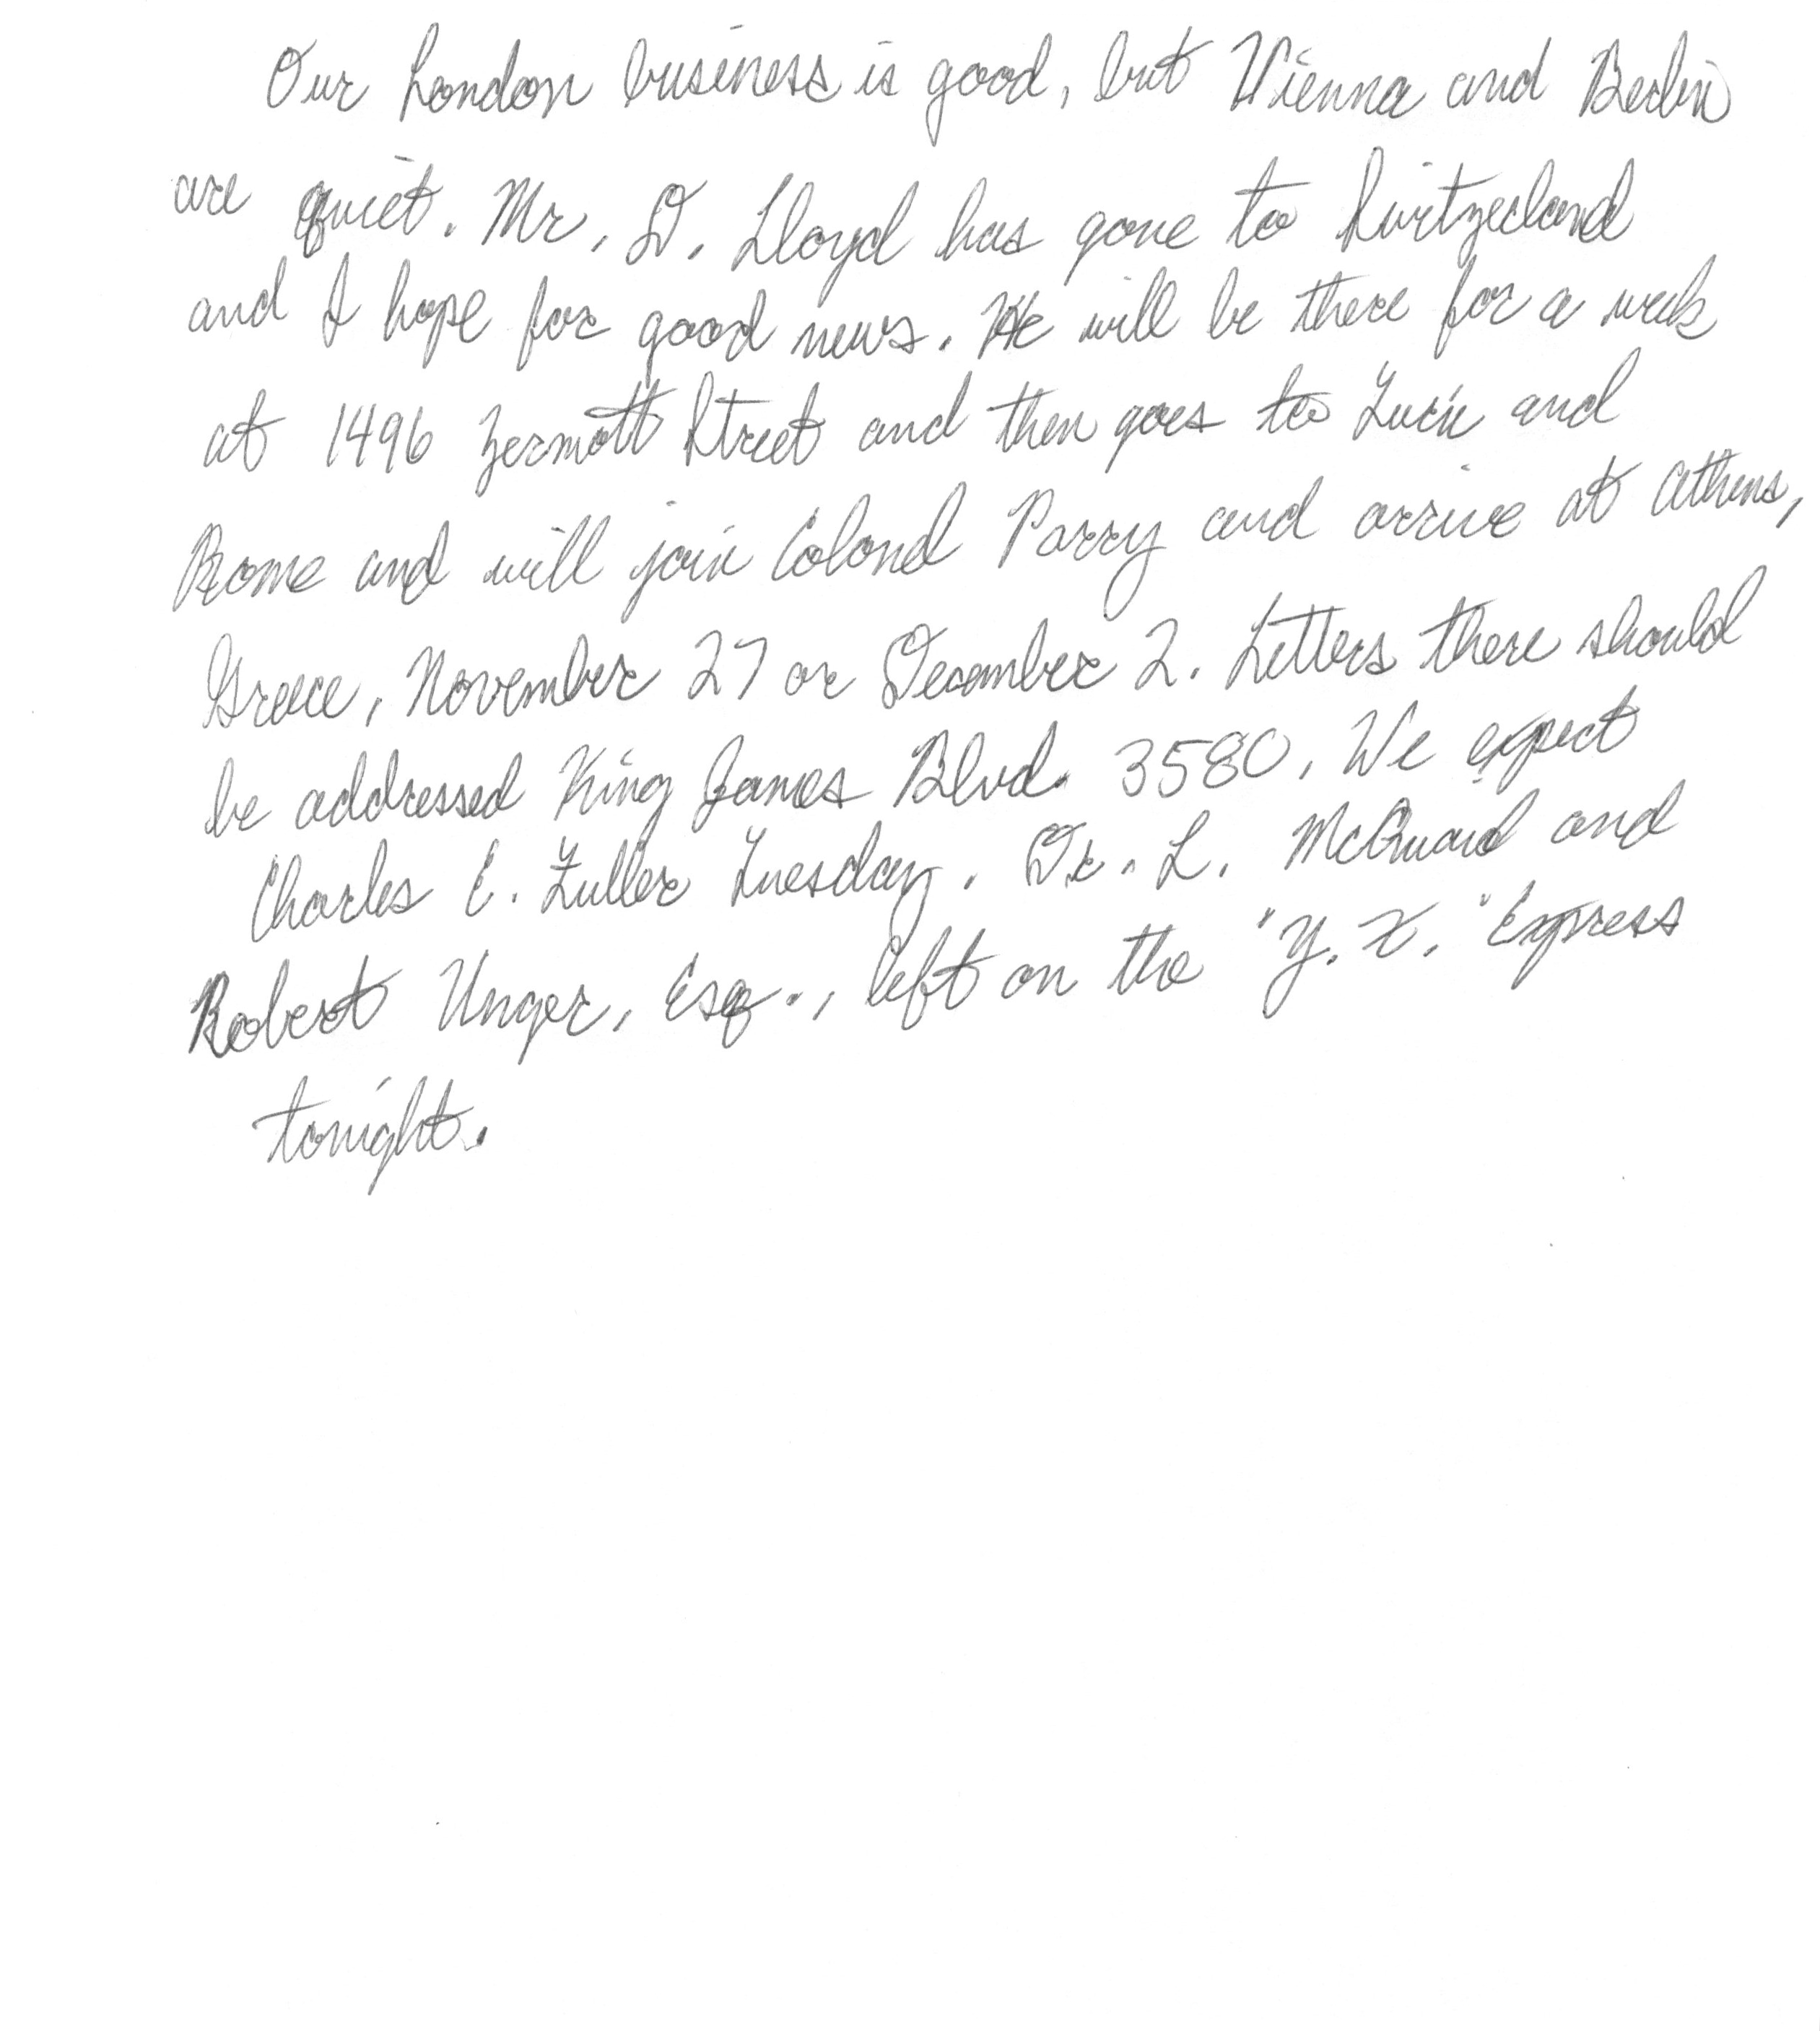 Our London business is good, but Vienna and Berlin
are quiet. Mr. D. Lloyd has gone to Switzerland
and I hope for good news. He will be there for a week
at 1496 Zermott Street and then goes to Turin and
Rome and will join Colonel Parry and arrive at Athens,
Greece, November 27 or December 2. Letters there should
be addressed King James Blvd. 3580. We expect
Charles E. Fuller Tuesday. Dr. L. McQuaid and
Robert Unger, Esq., left on the "Y. X." Express
tonight.